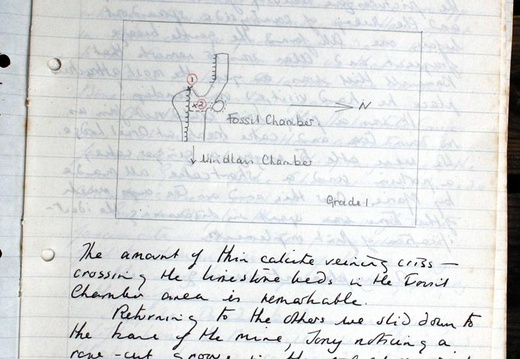 1
2
N
Fossil Chamber
Viridian Chamber
Grade 1.
The amount of thin calcite veining criss-
crossing the limestone beds in the Fossil
Chamber area is remarkable.
Returning to the others we slid down to
the base of the mine, Tony noticing a
rope-cut groove in the